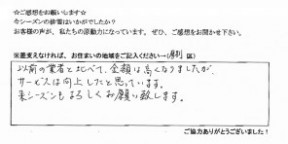 ☆ご感想をお願いします☆
今シーズンの除雪はいかがでしたか？
お客様の声が、私たちの原動力になっています。ぜひ、ご感想をお聞かせ下さい。
※差支えなければ、お住まいの地域をご記入ください→( 区)
以前の業者と比べて、金額は高くなりましたが、
サービスは向上したと思っています。
来シーズンもよろしくお願い致します。
ご協力ありがとうございました！